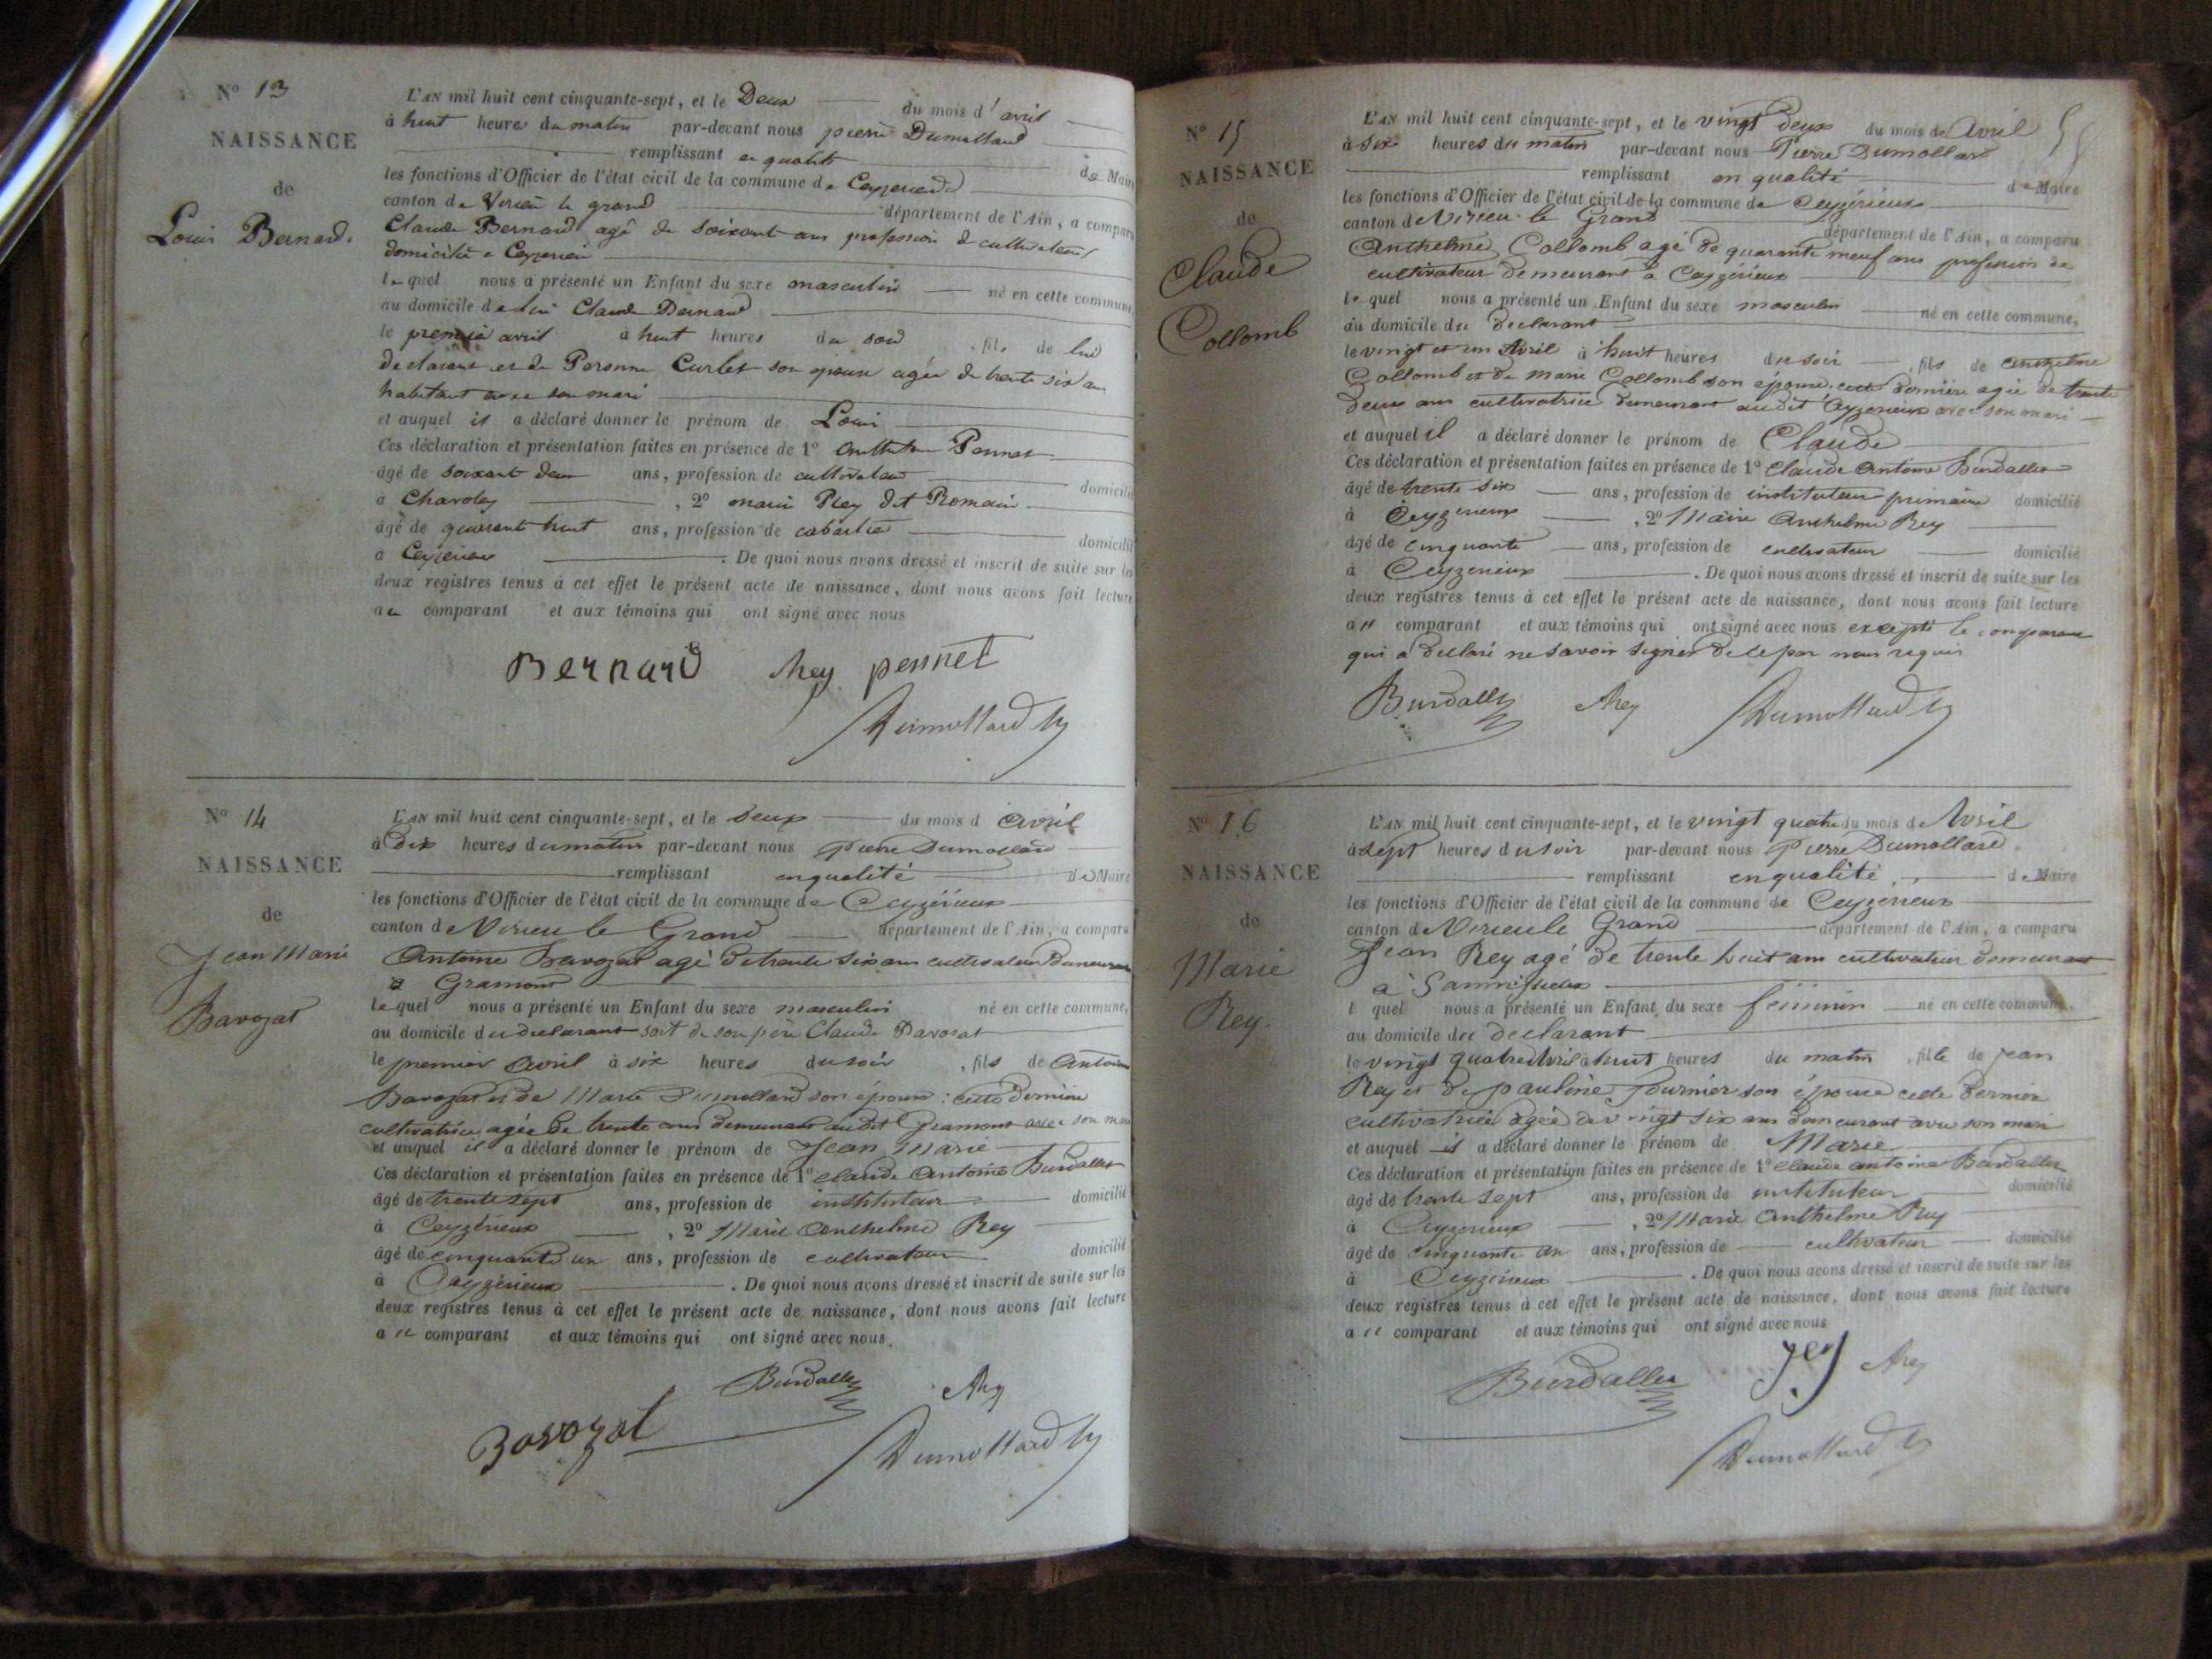 N° 13
NAISSANCE
de
Louis Bernard.
L'AN mil huit cent cinquante-sept, et le Deux du mois d'avril
à huit heures du matin par-devant nous pierre Dumollard
remplissant en qualité de Maire
les fonctions d'Officier de l'état civil de la commune de Ceyzerieu
canton de Virieu le grand département de l'Ain, a comparu
Claude Bernard agé de soixante ans profession de cultivateur
domicilié a Ceyzerieu
lequel nous a présenté un Enfant du sexe masculin né en cette commune,
au domicile de lui Claude Bernard
le premier avril à huit heures du soir, fils de lui
déclarant et de Peronne Curlet son épouse agée de trente six ans
habitant avec son mari
et auquel il a déclaré donner le prénom de Louis
Ces déclaration et présentation faites en présence de 1° Anthelme Pennet
âgé de soixante deux ans, profession de cultivateur domicilié
à Chavoley, 2° marie Rey dit Romain
âgé de quarante huit ans, profession de cabartier domicilié
à Ceyzerieu. De quoi nous avons dressé et inscrit de suite sur les
deux registres tenus à cet effet le présent acte de naissance, dont nous avons fait lecture
au comparant et aux témoins qui ont signé avec nous
Bernard Rey pennet
Dumollard
N° 14
NAISSANCE
de
Jean Marie
Bavozat
L'AN mil huit cent cinquante-sept, et le deux du mois d Avril
à Dix heures du matin par-devant nous pierre Dumollard
remplissant en qualité de Maire
les fonctions d'Officier de l'état civil de la commune de Ceyzérieux
canton de Virieu le Grand département de l'Ain, a comparu
Antoine Bavozat agé de trente six ans cultivateur demeurant
a Gramont
lequel nous a présenté un Enfant du sexe masculin né en cette commune,
au domicile du déclarant soit de son père Claude Bavozat
le premier Avril à six heures du soir, fils de Antoine
Bavozat et de Marie Dumollard son épouse : cette dernière
cultivatrice agée de trente ans demeurant audit Gramont avec son mari
et auquel il a déclaré donner le prénom de Jean Marie
Ces déclaration et présentation faites en présence de 1° Claude Antoine Burdallet
âgé de trente sept ans, profession de instituteur domicilié
à Ceyzérieux, 2° Marie Anthelme Rey
âgé de cinquante un ans, profession de cultivateur domicilié
à Ceyzérieux. De quoi nous avons dressé et inscrit de suite sur les
deux registres tenus à cet effet le présent acte de naissance, dont nous avons fait lecture
au comparant et aux témoins qui ont signé avec nous.
Burdallet Rey
Bavozat Dumollard
55
N° 15
NAISSANCE
de
Claude
Collomb
L'AN mil huit cent cinquante-sept, et le vingt deux du mois de Avril
à six heures du matin par-devant nous Pierre Dumollard
remplissant en qualité de Maire
les fonctions d'Officier de l'état civil de la commune de Ceyzérieux
canton de Virieu le Grand département de l'Ain, a comparu
Anthelme Collomb agé de quarante neuf ans profession de
cultivateur demeurant à Ceyzérieux
lequel nous a présenté un Enfant du sexe masculin né en cette commune,
au domicile du declarant
le vingt et un Avril à huit heures du soir, fils de Anthelme
Collomb et de marie Collomb son épouse cette dernière agée de trente
deux ans cultivatrice demeurant audit Ceyzerieux avec son mari
et auquel il a déclaré donner le prénom de Claude
Ces déclaration et présentation faites en présence de 1° Claude Antoine Burdallet
âgé de trente six ans, profession de instituteur primaire domicilié
à Ceyzerieux, 2° Marie Anthelme Rey
âgé de cinquante ans, profession de cultivateur domicilié
à Ceyzerieux. De quoi nous avons dressé et inscrit de suite sur les
deux registres tenus à cet effet le présent acte de naissance, dont nous avons fait lecture
au comparant et aux témoins qui ont signé avec nous excepté le comparant
qui a déclaré ne savoir signer de ce par nous requis
Burdallet Rey Dumollard
N° 16
NAISSANCE
de
Marie
Rey.
L'AN mil huit cent cinquante-sept, et le vingt quatre du mois de Avril
à sept heures du soir par-devant nous pierre Dumollard
remplissant en qualité de Maire
les fonctions d'Officier de l'état civil de la commune de Ceyzérieux
canton de Virieu le Grand département de l'Ain, a comparu
Jean Rey agé de trente huit ans cultivateur demeurant
à
l quel nous a présenté un Enfant du sexe féminin né en cette commune,
au domicile du declarant
le vingt quatre Avril à huit heures du matin, fille de Jean
Rey et de pauline fournier son épouse cette dernière
cultivatrice agée de vingt six ans demeurant avec son mari
et auquel il a déclaré donner le prénom de Marie
Ces déclaration et présentation faites en présence de 1° Claude antoine Burdallet
âgé de trente sept ans, profession de instituteur domicilié
à Ceyzerieux, 2° Marie Anthelme Rey
âgé de cinquante un ans, profession de cultivateur domicilié
à Ceyzérieux. De quoi nous avons dressé et inscrit de suite sur les
deux registres tenus à cet effet le présent acte de naissance, dont nous avons fait lecture
au comparant et aux témoins qui ont signé avec nous
Burdallet Rey
Dumollard